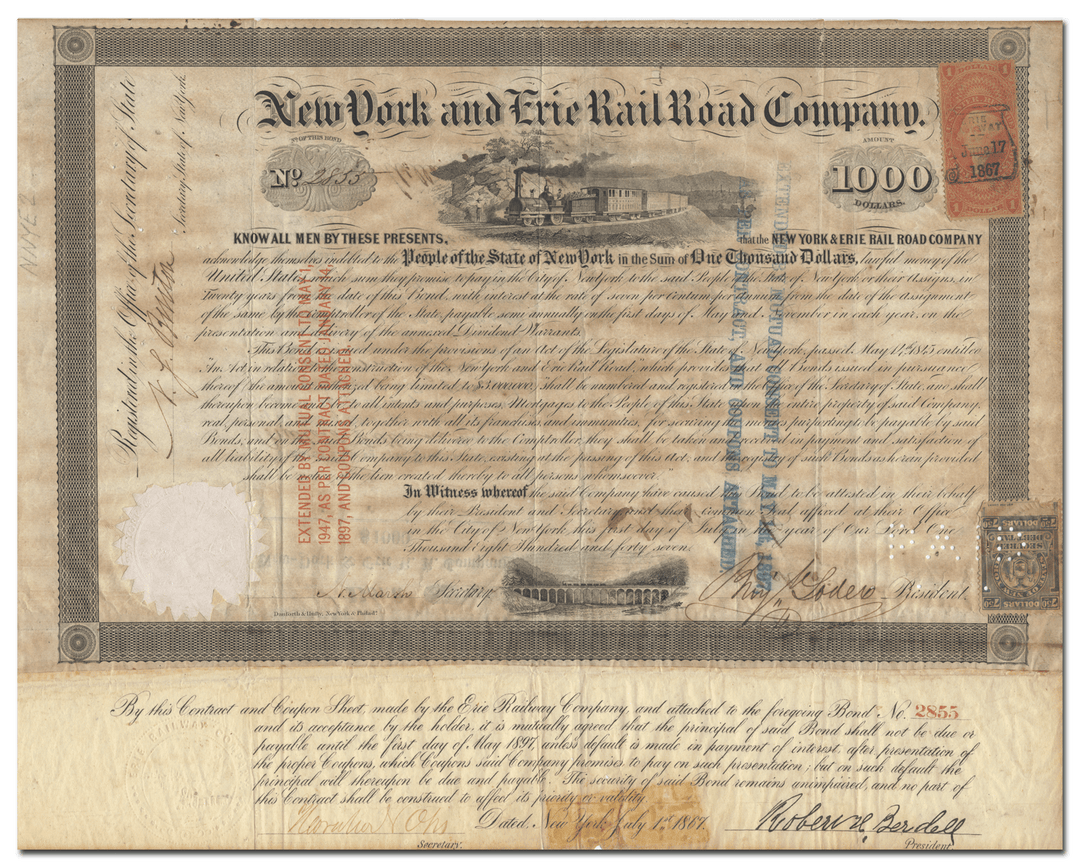 New York and Erie Rail Road Company.
No. OF THIS BOND
No 2855
AMOUNT
1000
DOLLARS.
KNOW ALL MEN BY THESE PRESENTS, that the NEW YORK & ERIE RAIL ROAD COMPANY
acknowledge themselves indebted to the People of the State of New York in the Sum of One Thousand Dollars, lawful money of the
United States, which sum they promise to pay in the City of New York to the said People of the State of New York or their Assigns, in
Twenty years from the date of this Bond, with interest at the rate of seven per centum per annum from the date of the assignment
of the same by the Comptroller of the State, payable semi annually on the first days of May and November in each year, on the
presentation and delivery of the annexed Dividend Warrants.
This Bond is issued under the provisions of an Act of the Legislature of the State of New York, passed May 14th 1845 entitled
An Act in relation to the construction of the New York and Erie Rail Road, which provides that all Bonds issued in pursuance
thereof the amount authorized being limited to $3,000,000. Shall be numbered and registered in the office of the Secretary of State, and shall
thereupon become and be to all intents and purposes, Mortgages to the People of this State upon the entire property of said Company,
real, personal and mixed, together with all its franchises and immunities, for securing the monies purporting to be payable by said
Bonds, and on the said Bonds being delivered to the Comptroller, they shall be taken and received in payment and satisfaction of
all liability of the said Company to this State, existing at the passing of this Act; and the security of such Bonds as herein provided
shall be prior to the lien created thereby to all persons whomsoever.
In Witness whereof the said Company have caused this Bond to be attested in their behalf
by their President and Secretary and their common Seal affixed at their Office
in the City of New York, this first day of July in the year of Our Lord One
Thousand Eight Hundred and forty seven
N. Marsh Secretary
Benj. Loder President
Danforth & Hufty, New York & Philada.
Registered in the Office of the Secretary of State
Secretary State of New York
EXTENDED BY MUTUAL CONSENT TO MAY 1,
1947, AS PER CONTRACT DATED JANUARY 4,
1897, AND COUPONS ATTACHED.
EXTENDED BY MUTUAL CONSENT TO MAY 1, 1897
AS PER CONTRACT AND COUPONS ATTACHED
RAILWAY
June 17
1867
1 DOLLAR 1
DOLLARS
NYE2
By this Contract and Coupon Sheet, made by the Erie Railway Company, and attached to the foregoing Bond No. 2855
and its acceptance by the holder, it is mutually agreed that the principal of said Bond shall not be due or
payable until the first day of May 1897, unless default is made in payment of interest, after presentation of
the proper Coupons, which Coupons said Company promises to pay on such presentation; but on such default the
principal will thereupon be due and payable. The security of said Bond remains unimpaired, and no part of
this Contract shall be construed to affect its priority or validity.
Horatio N. Otis Dated, New York July 1st 1867. Robert H. Berdell
Secretary. President.